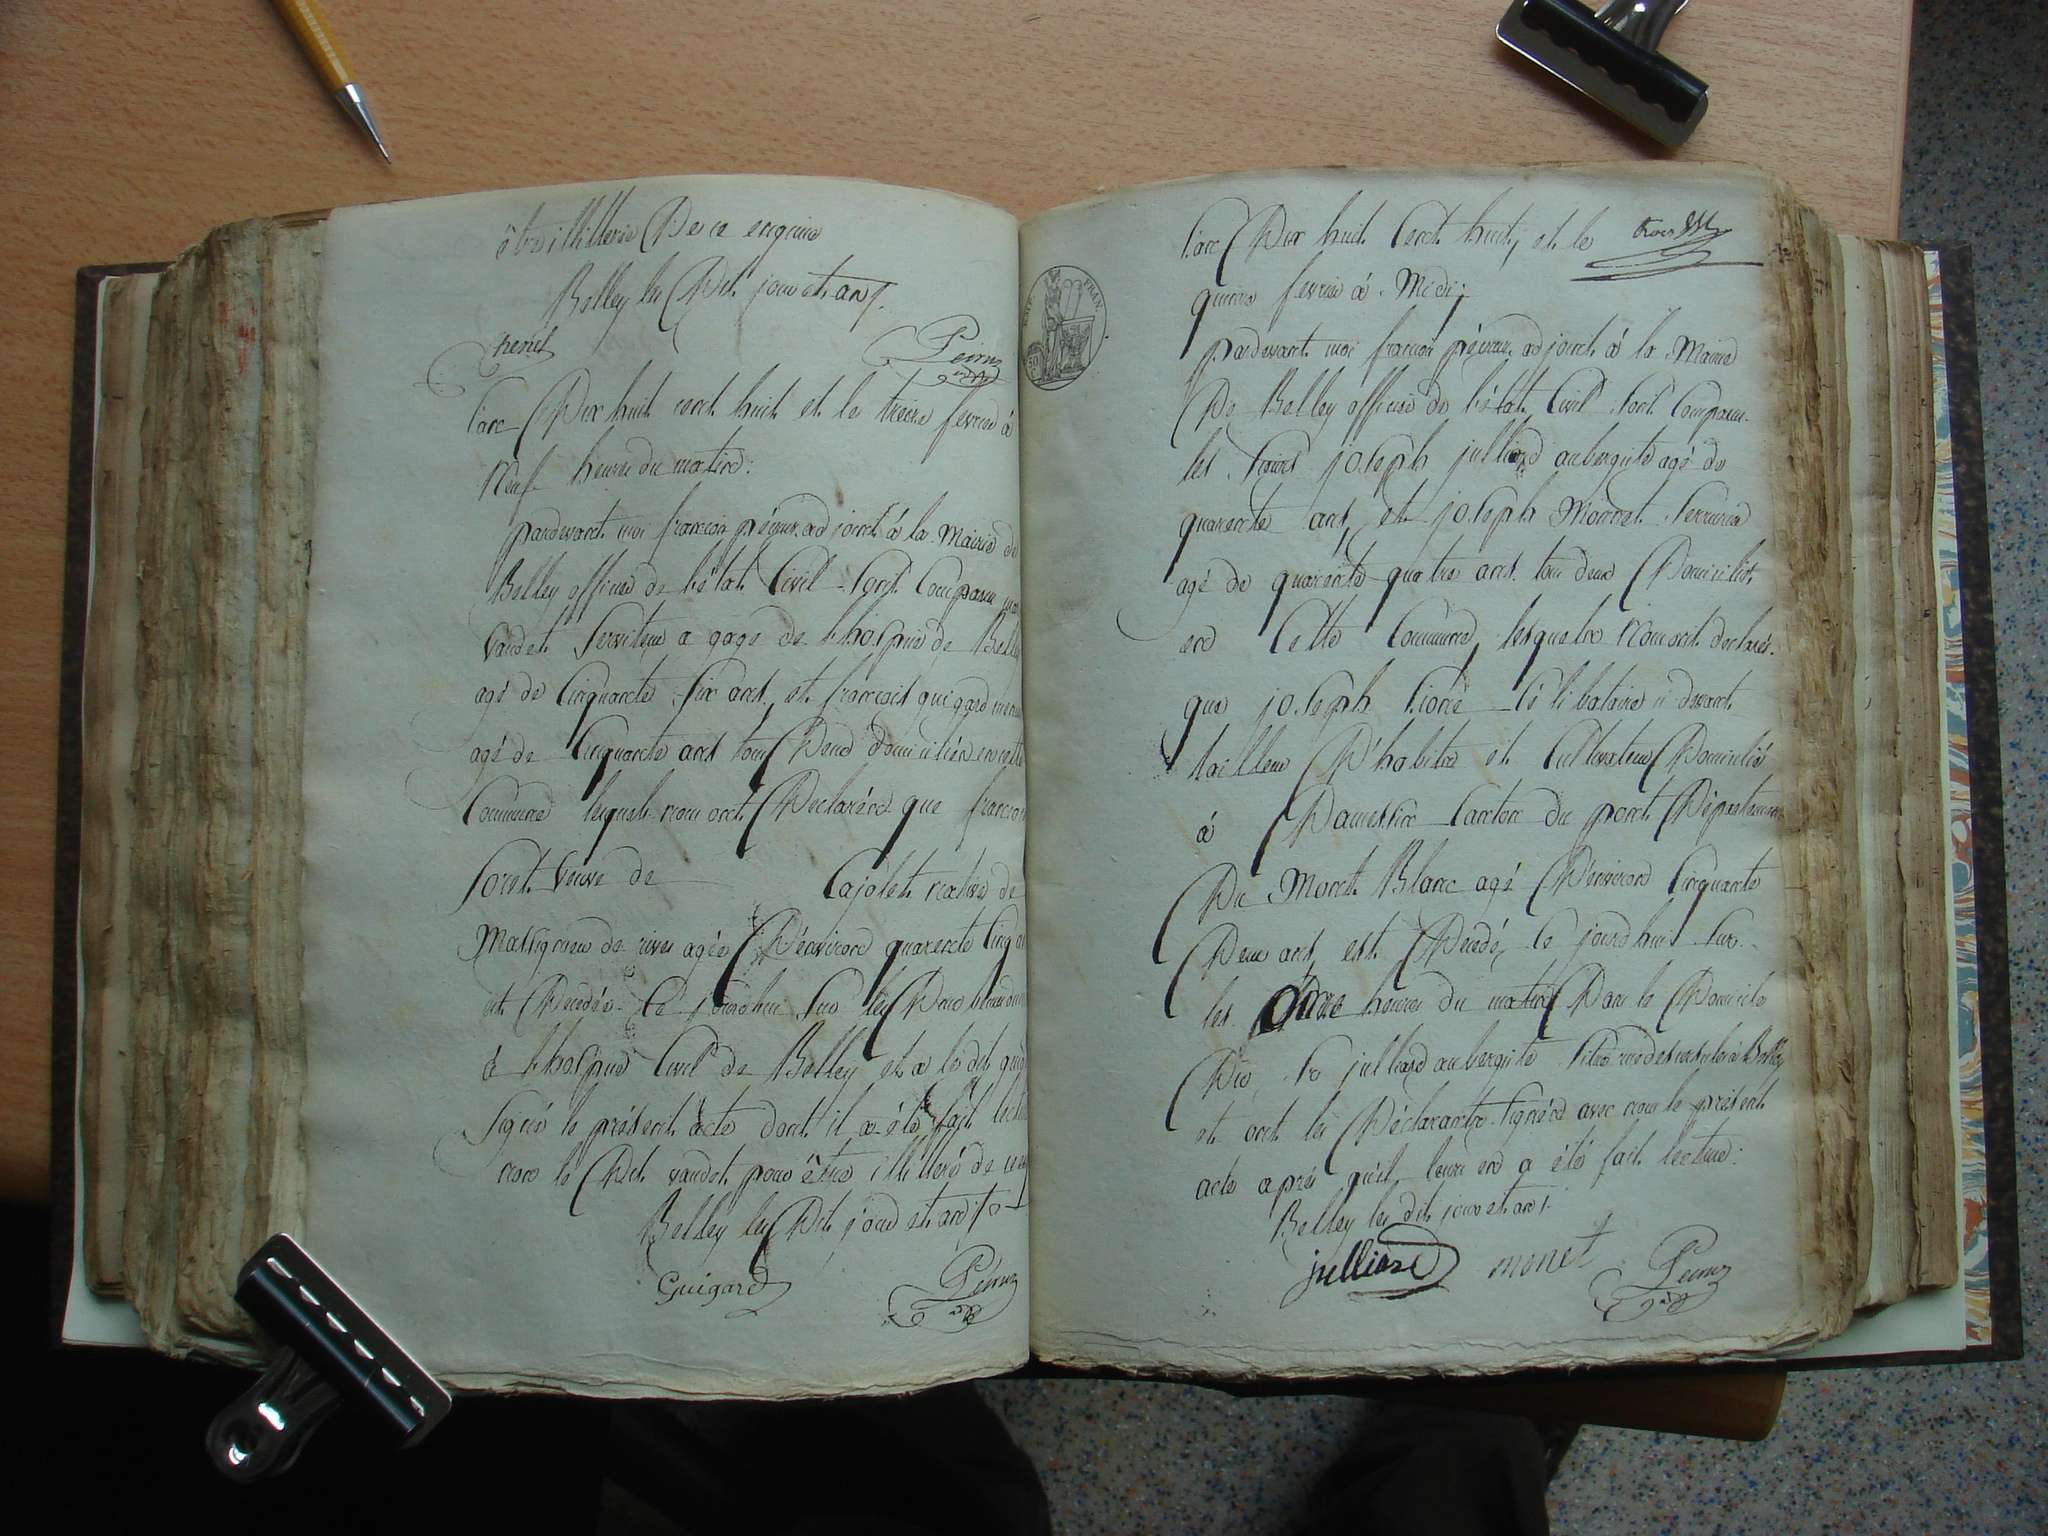 être illitteré De ce enquis
Belley les Dit jour et an /.
Peiruz
l'an Dix huit cent huit et le treize fevrier à
Neuf heures du matin:
pardevant moi françois péiruz adjoint à la Mairie de
Belley officier de l'état Civil sont Comparu
vaudet serviteur a gage de l'hospice de Belley
agé de Cinquante six ans, et françois guigard
agé de Cinquante ans tous Deux domiciliés en cette
Commune lesquels nous ont Declarées que françoise
soret veuve de Cajolet native de
Massignieu de rives agée D'environ quarente Cinq ans
est Decedée Ce jourdhui sur les Deux heures
à l'hospice Civil de Belley et a le dit guigard
signé le présent acte dont il a été fait lecture
non le Dit vaudet pour être illitteré de ce
Belley les Dit jour et an
Guigard
Peiruz
l'an Dix huit Cent huit, et le
quinze fevrier à Midi;
pardevant moi françois péiruz adjoint à la Mairie
De Belley officier de l'état Civil sont Comparu
les sieurs joseph julliard aubergiste agé de
quarente ans, et joseph Monnet serrurier
agé de quarente quatre ans tous deux Domiciliés
en Cette Commune, lesquels Nous ont declarés
que joseph Célibataire ci devant
tailleur D'habits et Cultivateur Domicilié
à Canton du pont Département
Du Mont Blanc agé D'environ Cinquante
Deux ans, est Decedé, Ce jourdhui sur
les onze heures du matin Dans le Domicile
Du sr julliard aubergiste situé rue des ursules à Belley
et ont les Déclarants signés avec nous le présent
acte après qu'il leurs en a été fait lecture:
Belley les dit jour et an /.
julliard monet Peiruz